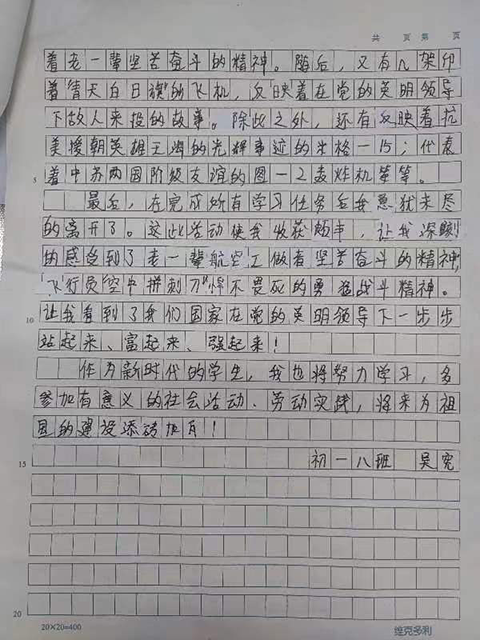 共 页 第 页
着老一辈坚苦奋斗的精神。随后，又有几架印
着"青天白日旗"的飞机，反映着在党的英明领导
下敌人来投的故事。除此之外，还有反映着抗
美援朝英雄王海的光辉事迹的米格一15；代表
着中苏两国阶级友谊的图一2轰炸机等等。
5
最后，在完成所有学习任务后我意犹未尽
的离开了。这次活动使我收获颇丰，让我深刻
的感受到了老一辈航空工做者坚苦奋斗的精神，
飞行员"空中拼刺刀"悍不畏死的勇猛战斗精神。
让我看到了我们国家在党的英明领导下一步步
10
站起来、富起来、强起来！
作为新时代的学生，我也将努力学习，多
参加有意义的社会活动、劳动实践，将来为祖
国的建设添砖加瓦！
15
初一八班 吴宪
20
20×20=400 维克多利